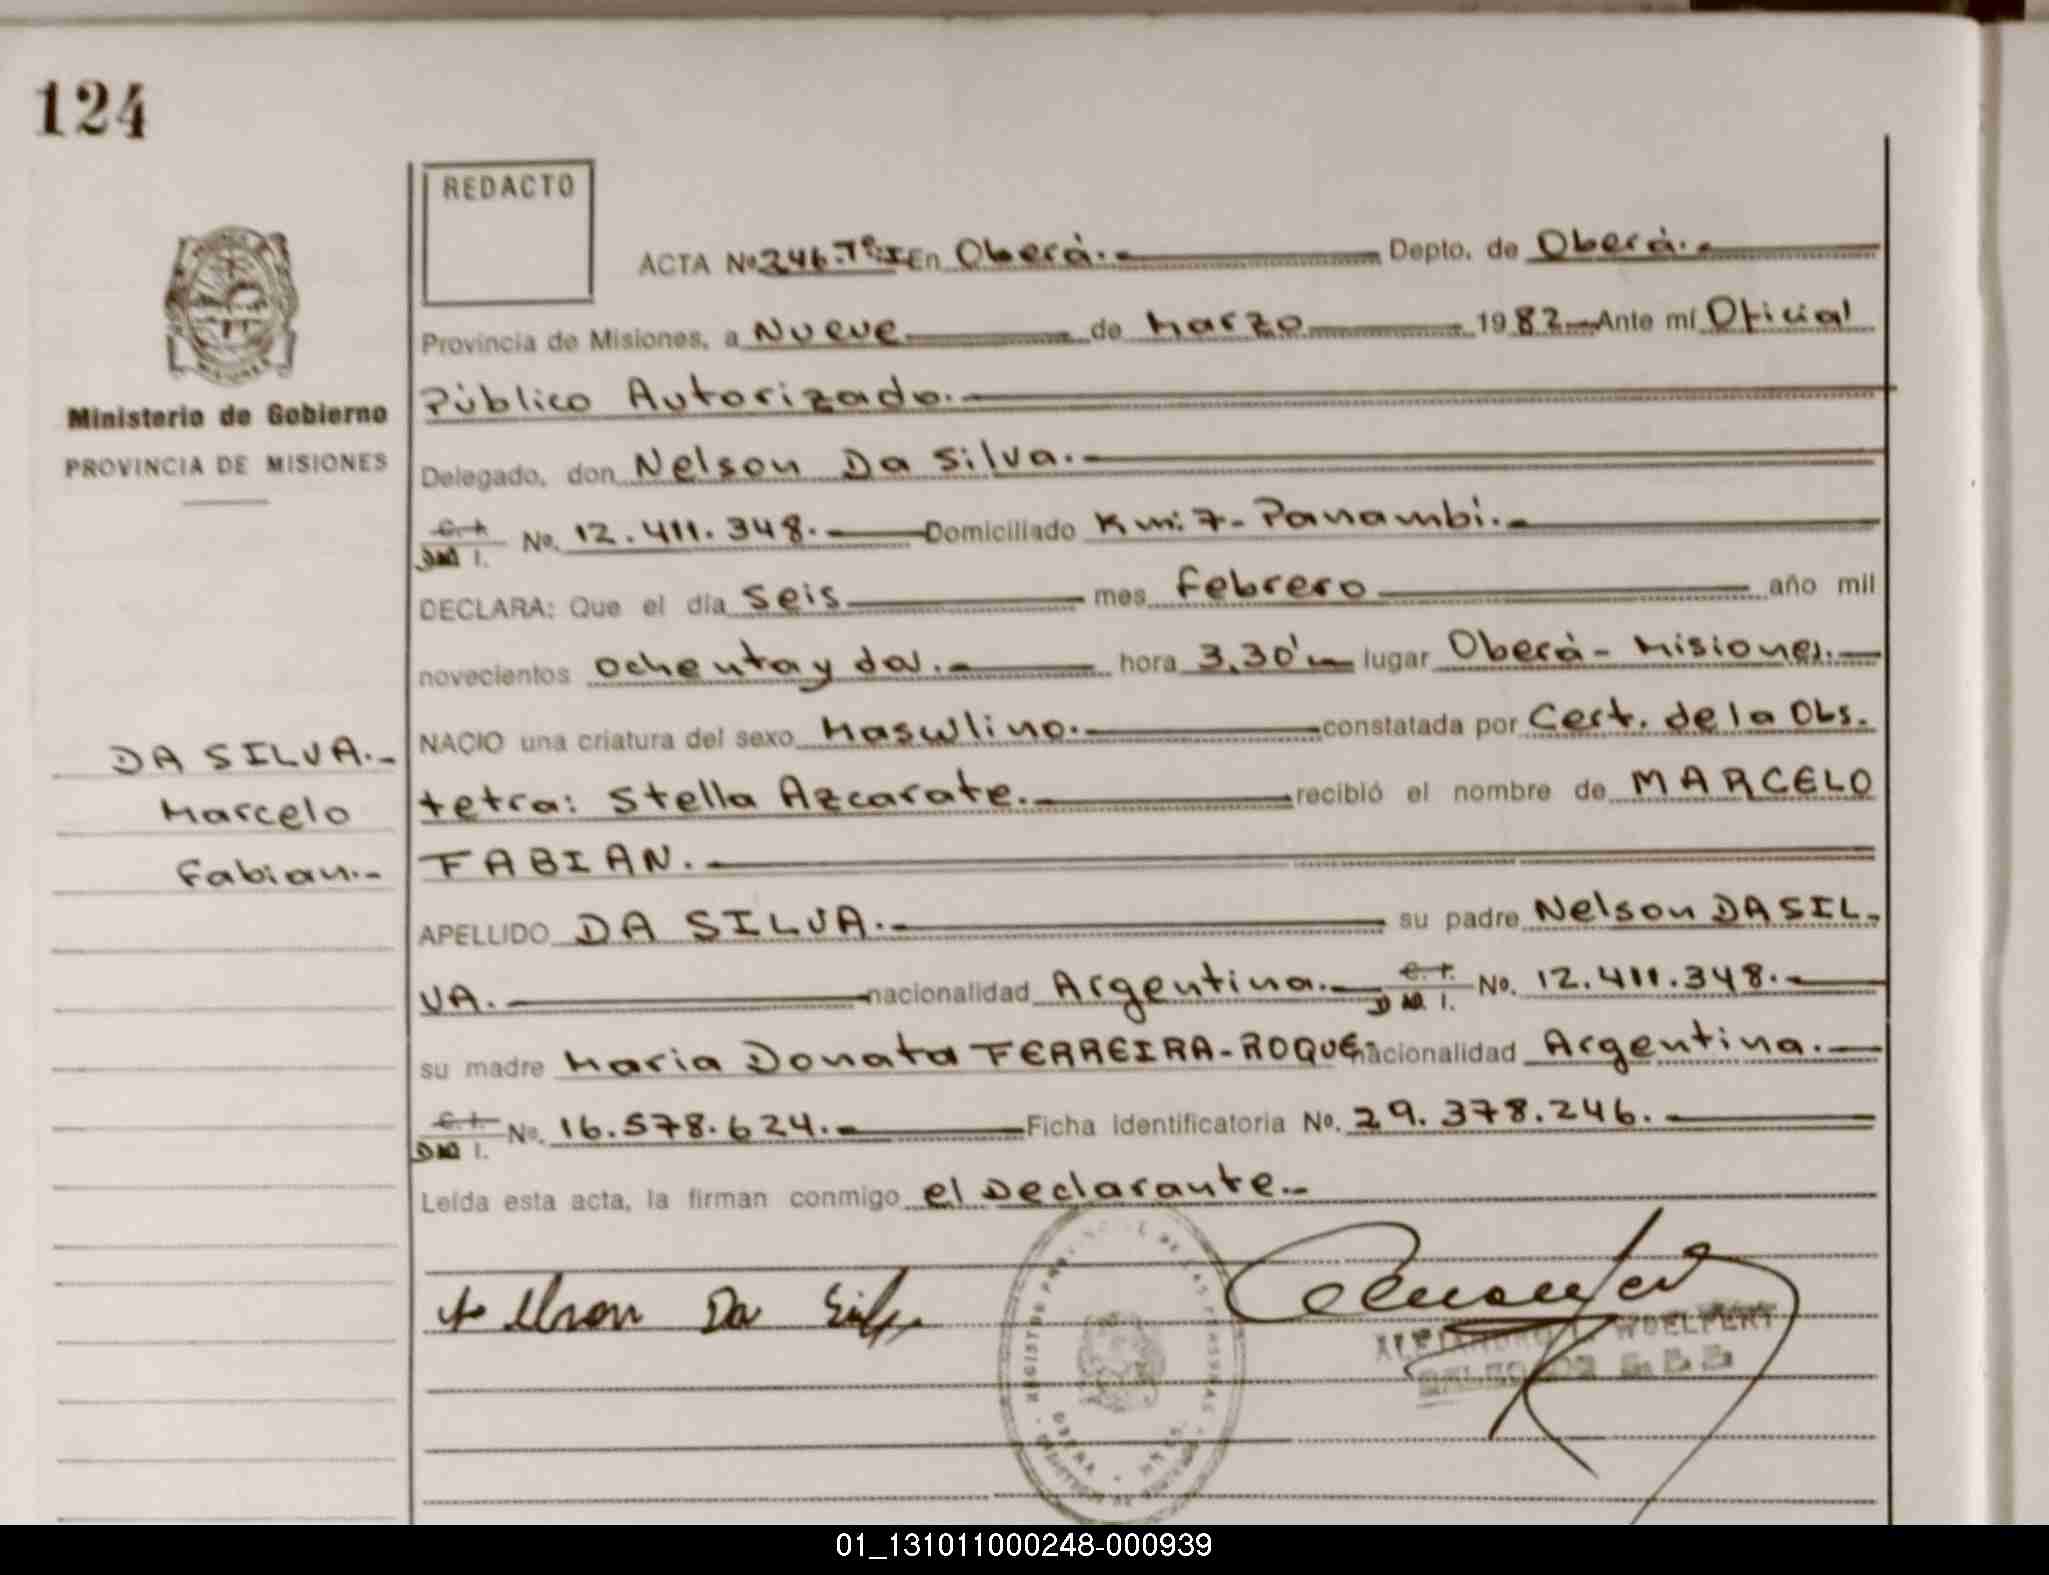 124
REDACTO
ACTA Nº 246.Tº:I En Oberá.- Depto. de Oberá.-
Provincia de Misiones, a Nueve de Marzo 1982.- Ante mí Oficial
Público Autorizado.-
Ministerio de Gobierno
PROVINCIA DE MISIONES
Delegado, don Nelson Da Silva.-
C.I. D.N.I. No. 12.411.348.- Domiciliado Km: 7- Panambi.-
DECLARA: Que el día seis mes febrero año mil
novecientos ochenta y dos.- hora 3,30' lugar Oberá- Misiones.-
NACIO una criatura del sexo Masculino.- constatada por Cert. de la Obs.
DA SILVA.-
Marcelo
Fabian.-
tetra: Stella Azcarate.- recibió el nombre de MARCELO
FABIAN.-
APELLIDO DA SILVA.- su padre Nelson DA SIL-
VA.- nacionalidad Argentina.- C.I. D.N.I. No. 12.411.348.-
su madre Maria Donata FERREIRA-ROQUE nacionalidad Argentina.-
C.I. D.N.I. No. 16.578.624.- Ficha identificatoria No. 29.378.246.-
Leída esta acta, la firman conmigo el Declarante.-
Nelson Da Silva
WOELFERT
01_131011000248-000939